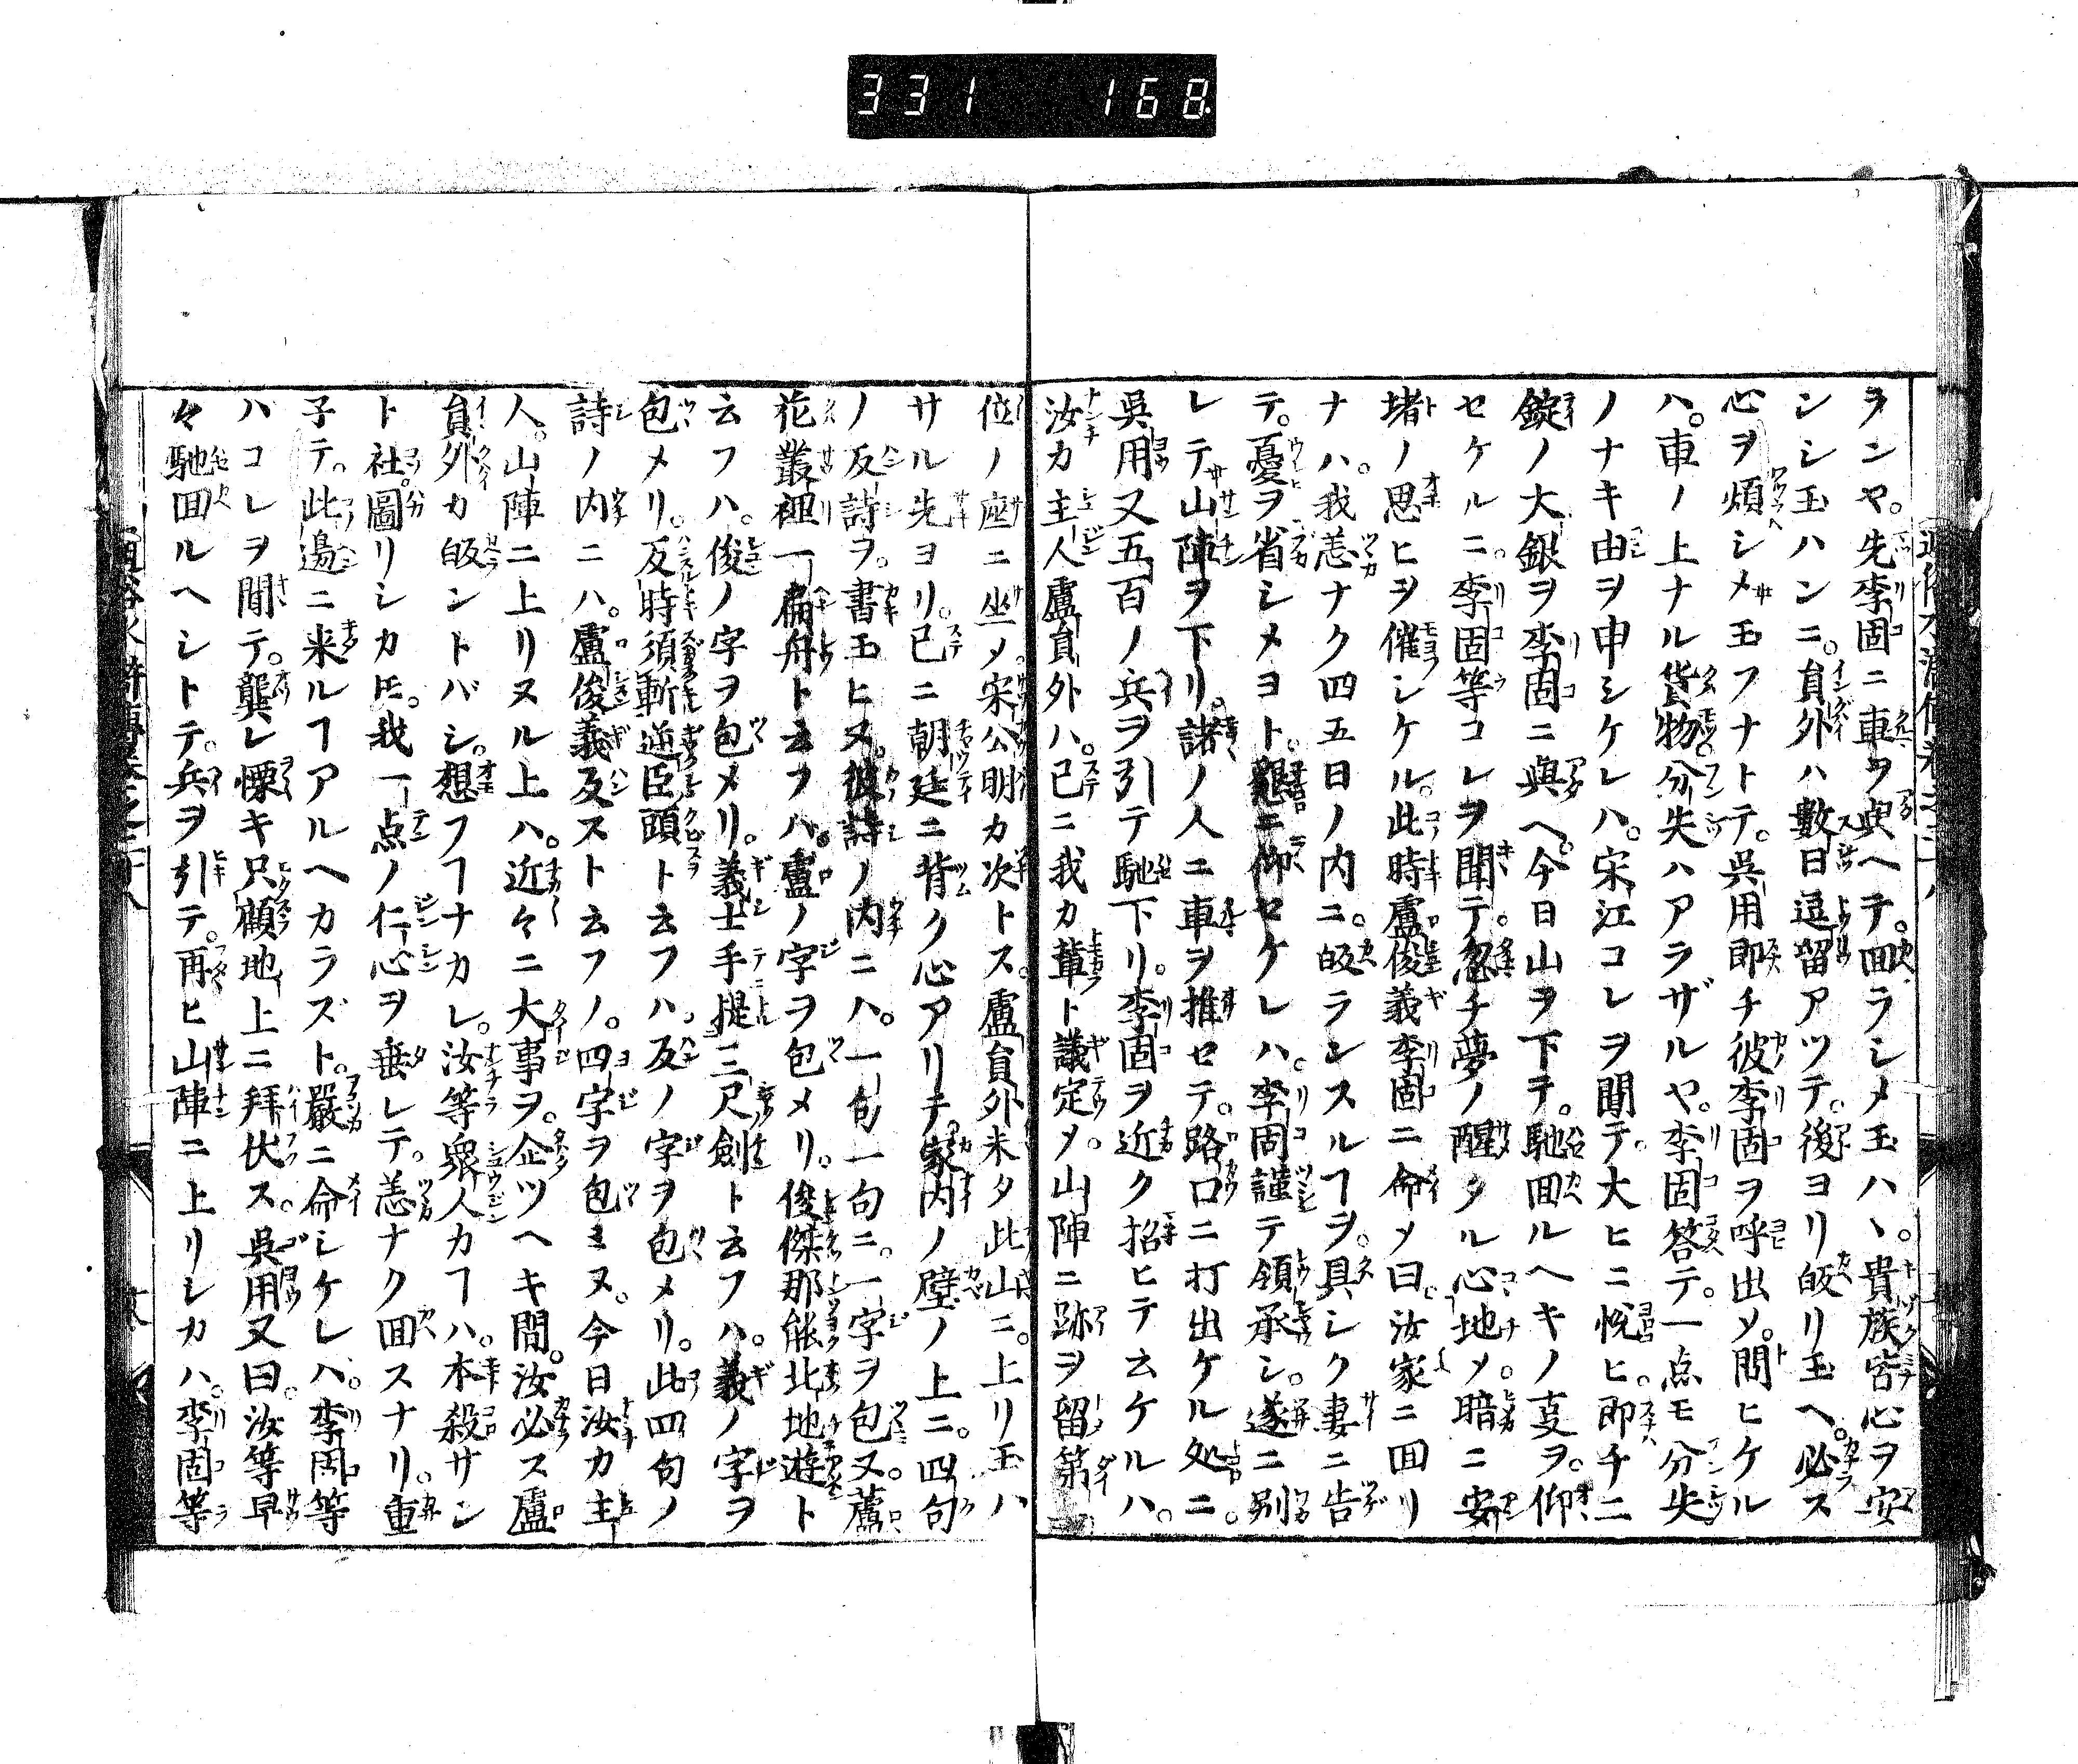 331 168
ランヤ。先李固ニ車ヲ與ヘテ。回ラシメ玉ハヽ。貴族皆心ヲ安
ンシ玉ハンニ。員外ハ數日逗留アツテ。後ヨリ皈リ玉ヘ。必ス
心ヲ煩シメ玉フナトテ。吳用即チ彼李固ヲ呼出ノ。問ヒケル
ハ。車ノ上ナル貨物。分失ハアラザルヤ。李固答テ。一点モ分失
ノナキ由ヲ申シケレハ。宋江コレヲ聞テ。大ヒニ悅ヒ。即チ二
錠ノ大銀ヲ李固ニ與ヘ。今日山ヲ下テ。馳回ルヘキノ㕝ヲ。仰
セケルニ。李固等コレヲ聞テ。忽チ夢ノ醒タル心地ノ。暗ニ安
堵ノ思ヒヲ催シケル。此時盧俊義李固ニ命ノ曰。汝家ニ回リ
ナハ。我恙ナク四五日ノ内ニ。皈ランスルヿヲ。具シク妻ニ告
テ。憂ヲ省シメヨト。懇ニ仰セケレハ。李固謹テ領承シ。遂ニ別
レテ山陣ヲ下リ。諸ノ人ニ車ヲ推セテ。路口ニ打出ケル処ニ。
吳用又五百ノ兵ヲ引テ馳下リ。李固ヲ近ク招ヒテ云ケルハ。
汝カ主人盧員外ハ。已ニ我カ輩ト議定ノ。山陣ニ跡ヲ留第
位ノ座ニ坐ノ。宋公明カ次トス。盧員外未タ此山ニ。上リ玉ハ
サル先ヨリ。已ニ朝廷ニ背ク心アリテ。家内ノ壁ノ上ニ。四句
ノ反詩ヲ。書玉ヒヌ。彼詩ノ内ニハ。一句一句ニ。一字ヲ包又。蘆
花叢裡一扁舟ト云フハ。盧ノ字ヲ包メリ。俊傑那能北地遊ト
云フハ。俊ノ字ヲ包メリ。義士手提三尺劍ト云フハ。義ノ字ヲ
包メリ。反時須斬逆臣頭ト云フハ。反ノ字ヲ包メリ。此四句ノ
詩ノ内ニハ。盧俊義反スト云フノ。四字ヲ包ミヌ。今日汝カ主
人。山陣ニ上リヌル上ハ。近々ニ大事ヲ。企ツヘキ間。汝必ス盧
員外カ皈ントバシ。想フヿナカレ。汝等衆人カヿハ。本殺サン
ト社。圖リシカ𪜈。我一点ノ仁心ヲ垂レテ。恙ナク回スナリ。重
子テ。此邉ニ来ルヿアルヘカラズト。嚴ニ命シケレハ。李固等
ハコレヲ聞テ。龔レ慄キ只顧地上ニ拜伏ス。吳用又曰。汝等早
々馳回ルヘシトテ。兵ヲ引テ。再ヒ山陣ニ上リシカハ。李固等